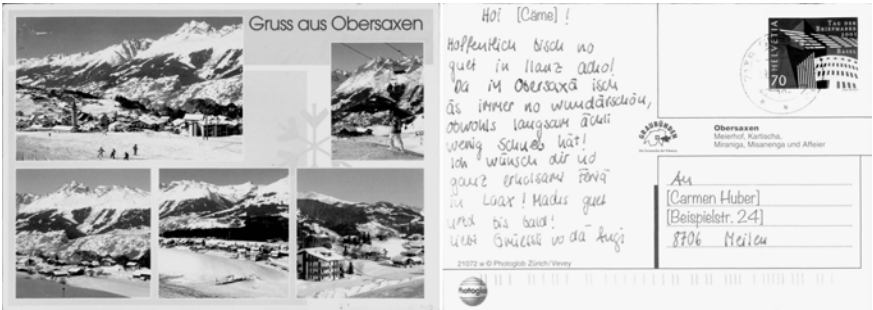 Gruss aus Obersaxen
Hoi [Carne] !
Hoffentlich bisch no
guet in Ilanz acho!
Da in Obersaxä isch
äs immer no wundärschön,
obwohls langsam ächli
wenig Schnee hät!
Ich wünsch dir no
ganz erholsami Feriä
in Laax! Machs guet
und bis bald!
Liebi Grüessli vo dä Angi
HELVETIA
70
TAG DER
BRIEFMARKE
2001
BASEL
GRAUBÜNDEN
Obersaxen
Meierhof, Kartischa,
Miraniga, Misanenga und Affeier
An
[Carmen Huber]
[Beispielstr. 24]
8706 Meilen
21072 w © Photoglob Zürich/Vevey
Photoglob